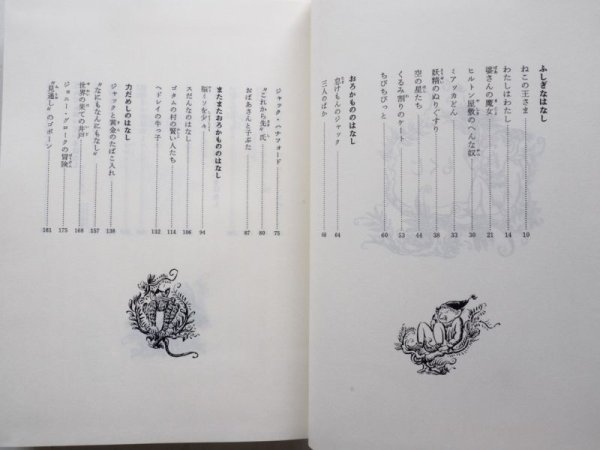 ふしぎなはなし
ねこの王さま……10
わたしはわたし……14
婆さんの魔女……21
ヒルトン屋敷のへんな奴……30
ミアッカどん……33
妖精のぬりぐすり……38
空の星たち……44
くるみ割りのケート……53
ちびちびっと……60
おろかもののはなし
怠けもののジャック……64
三人のばか……68
ジャック・ハナフォード……75
"これから先"氏……80
おばあさんと子ぶた……87
またまたおろかもののはなし
脳ミソを少々……94
スだんなのはなし……106
ゴタムの村の賢い人たち……114
ヘドレイの牛っ子……132
力だめしのはなし
ジャックと黄金のたばこ入れ……138
"なにもなんにもなし"……157
世界の果ての井戸……168
ジョニー・グロークの冒険……175
"見通し"のゴボーン……181